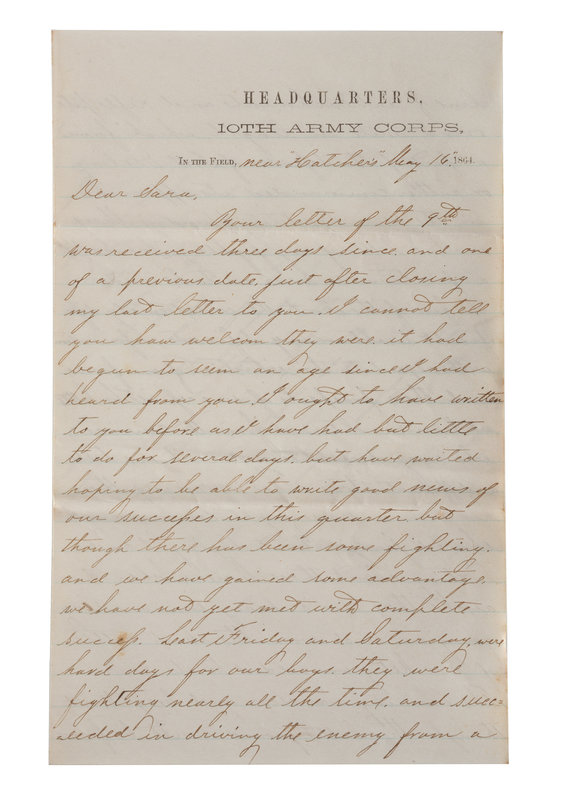 HEADQUARTERS,
10TH ARMY CORPS,
IN THE FIELD, near "Hatcher's" May 16", 1864.
Dear Sara,
Your letter of the 9th
was received three days since. and one
of a previous date. just after closing
my last letter to you. I cannot tell
you how welcom they were. it had
begun to seem an age since I had
heard from you. I ought to have written
to you before as I have had but little
to do for several days. but have waited
hoping to be able to write good news of
our successes in this quarter, but
though there has been some fighting.
and we have gained some advantage.
we have not yet met with complete
success. Last Friday and Saturday, were
hard days for our boys. they were
fighting nearly all the time. and succ=
eeded in driving the enemy from a